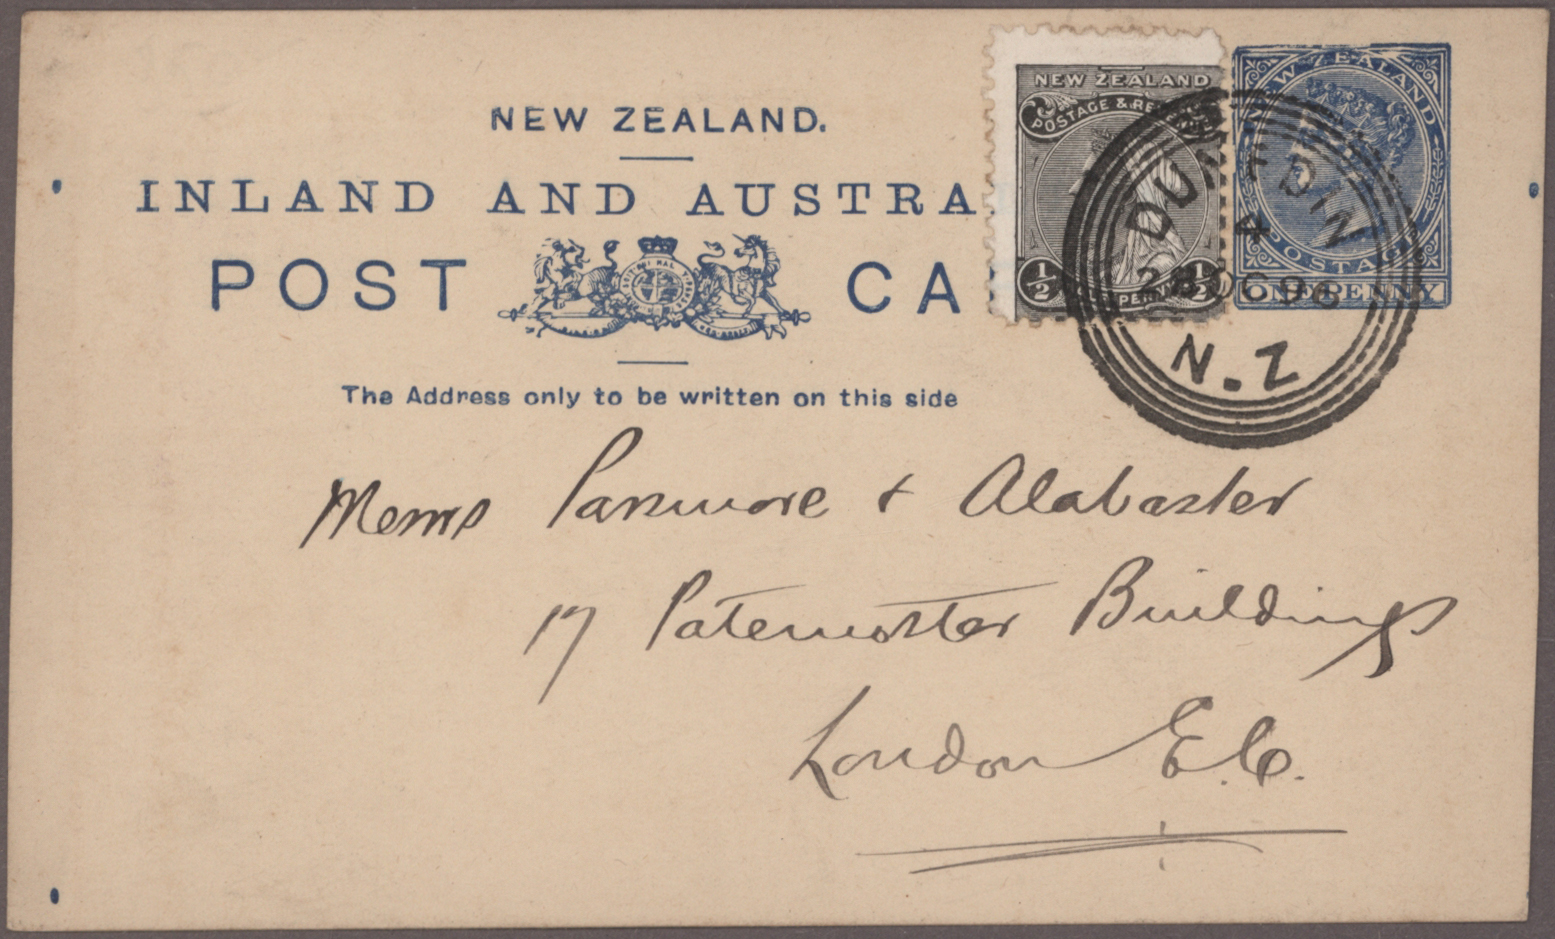 NEW ZEALAND.
INLAND AND AUSTRA
POST CA
The Address only to be written on this side
NEW ZEALAND
POSTAGE & RE
½ PENN ½
NEW ZEALAND
POSTAGE
ONE PENNY
DUNEDIN
4
28 OC 96
N.Z
Messrs Passmore + Alabaster
17 Paternoster Buildings
London E.C.